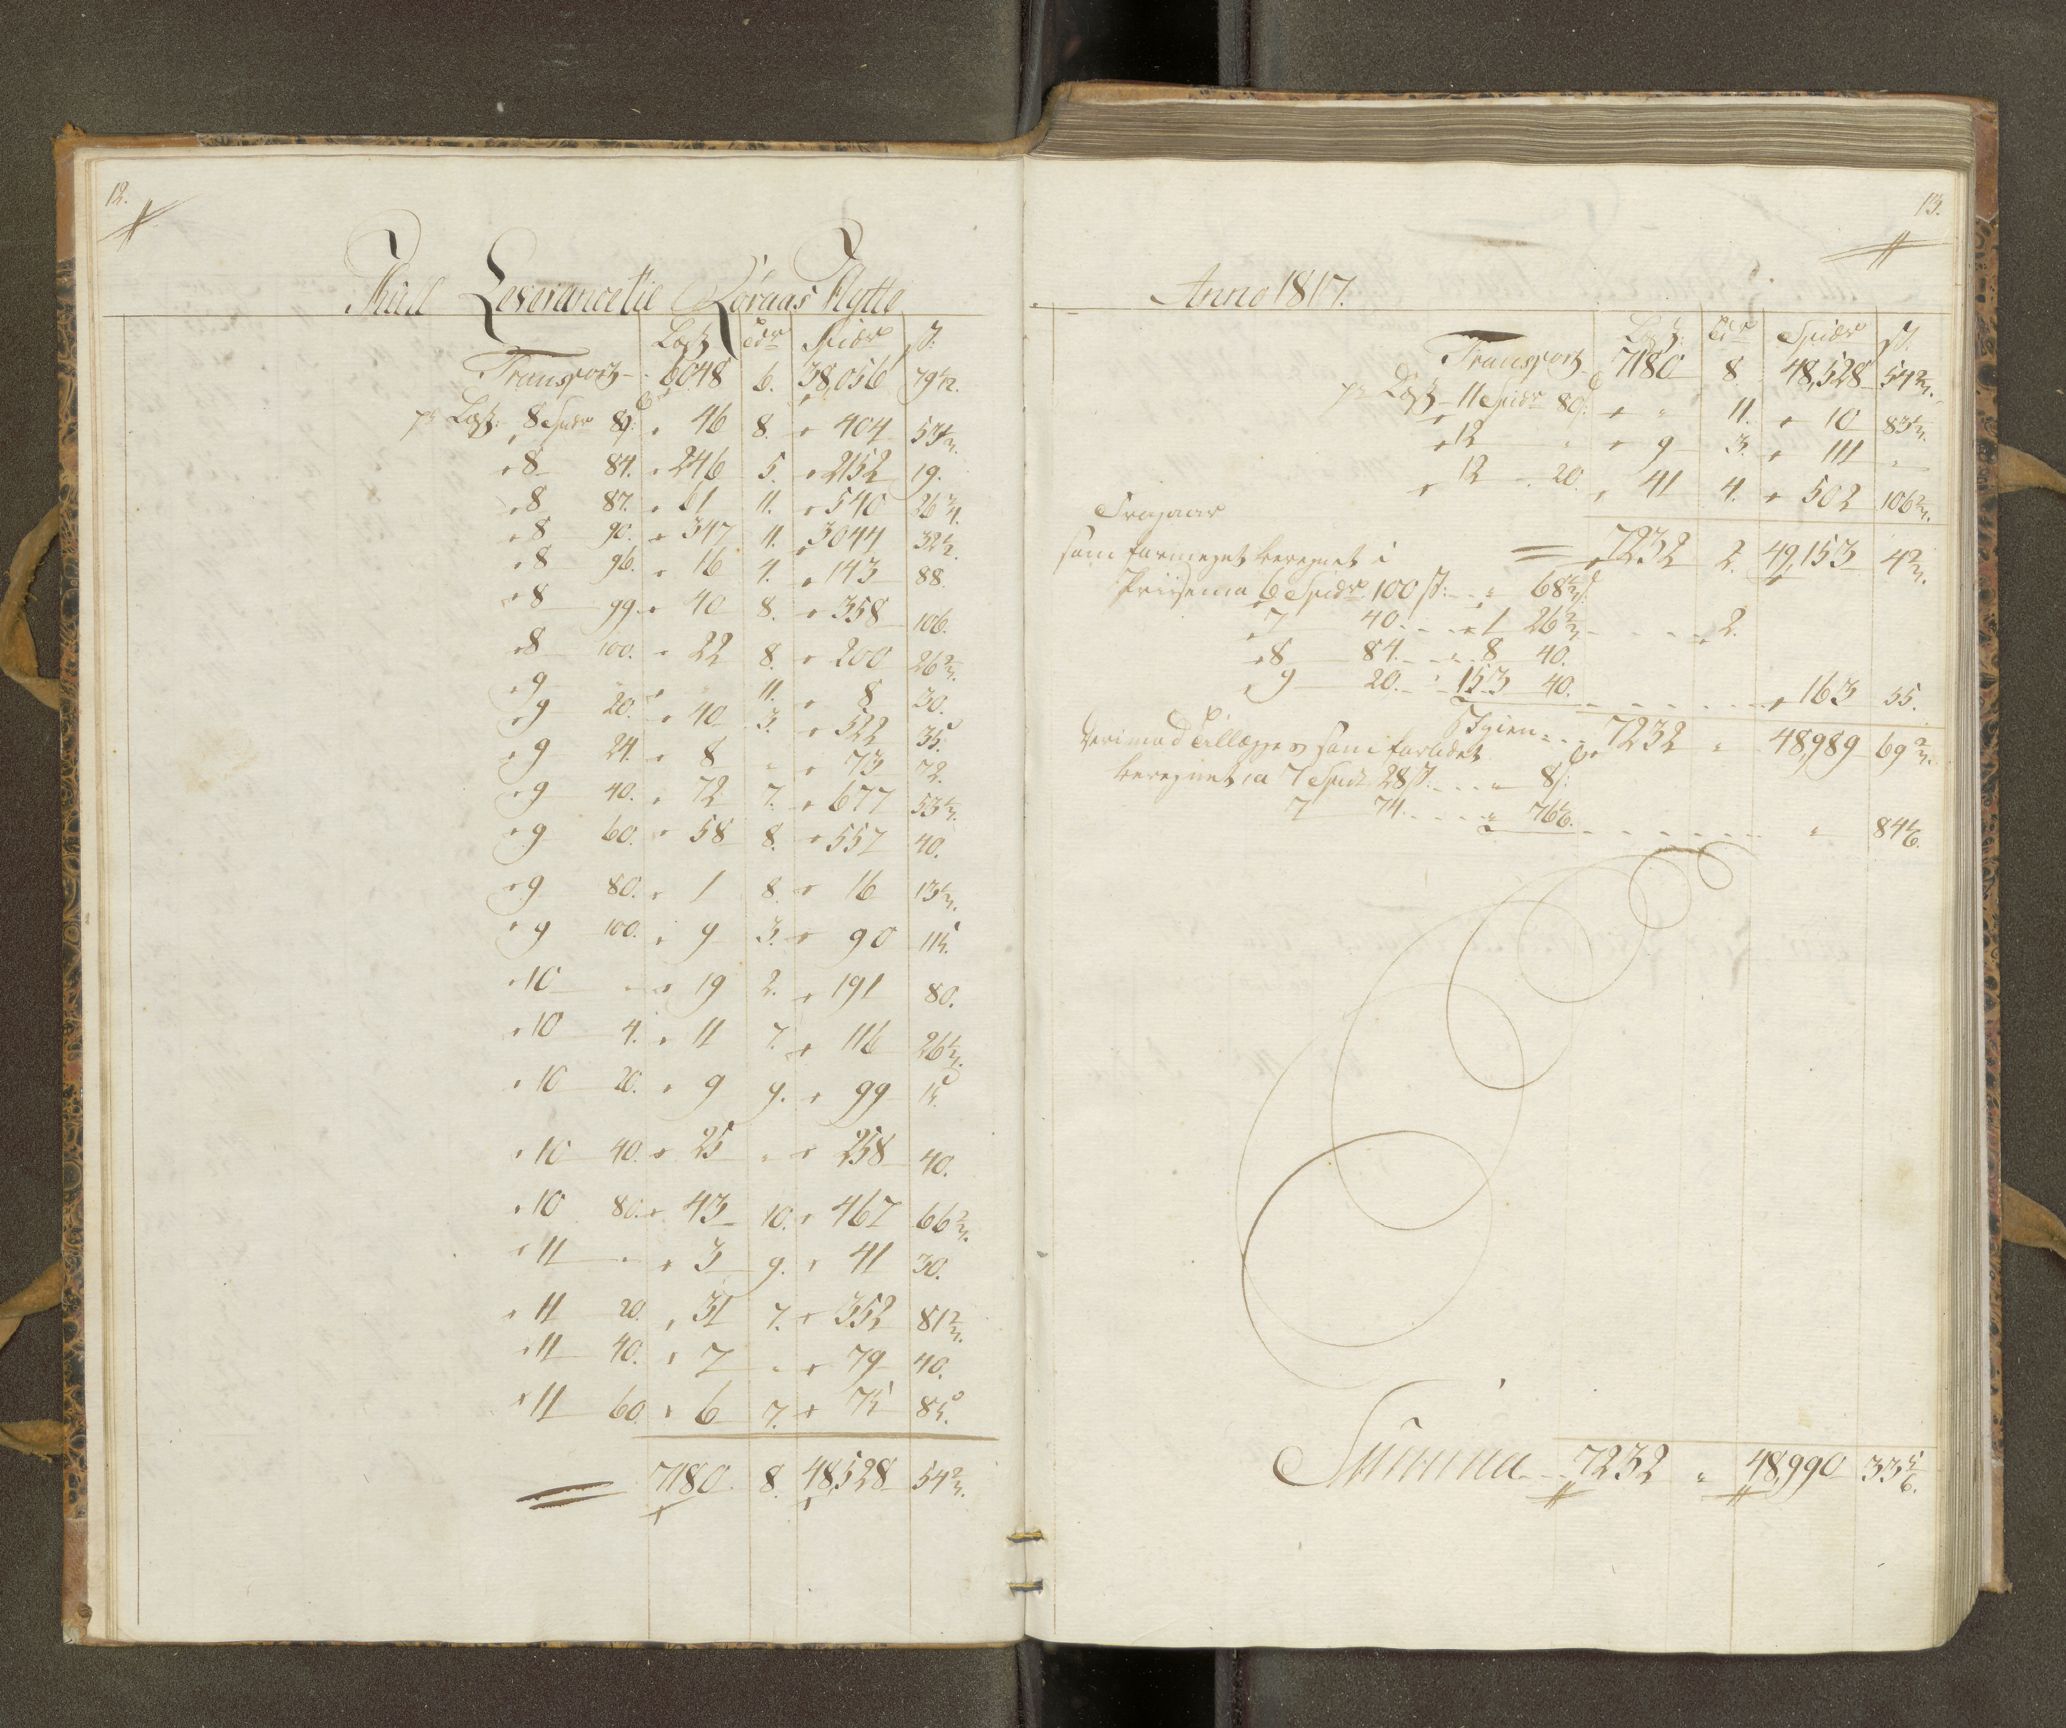 12.
Kuul Leverancetil Röraas Hytte
Læst Tdr Spidr ß.
Transport 6048 6. 38,056 79 1/12.
pr Læst: 8 Spidr 80 ß: 46 8. 404 53 1/3.
8 84. 246 5. 2152 19.
8 87. 61 11. 540 26 3/4.
8 90. 347 11. 3044 32 1/2.
8 96. 16 4. 143 88.
8 99. 40 8. 358 106.
8 100. 22 8. 200 26 2/3.
9 " " 11. 8 30.
9 20. 40 3. 522 35.
9 24. 8 " 73 72.
9 40. 72 7. 677 53 1/3.
9 60. 58 8. 557 40.
9 80. 1 8. 16 13 1/3.
9 100. 9 3. 90 115.
10 " 19 2. 191 80.
10 4. 11 7. 116 26 1/3.
10 20. 9 9. 99 15.
10 40. 25 " 258 40.
10 80. 43 10. 467 66 2/3.
11 " 3 9. 41 30.
11 20. 31 7. 352 81 2/3.
11 40. 7 " 79 40.
11 60. 6 7. 75 85.
7180. 8. 48,528 54 2/3.
13.
Anno 1817.
Læst: Tdr Spidr ß.
Transport 7180 8. 48,528 54 2/3.
pr Læst 11 Spidr 80 ß: " 11. 10 83 1/3.
12 " 9 3. 111 "
12 20. 41 4. 502 106 2/3.
Fragaar
7232 2. 49,153 4 2/3.
som formeget beregnet i
Priiserna 6 Spidr 100 ß: " 68 2/3 ß.
7 40. 1 26 2/3. 2.
8 84. 8 40.
9 20. 153 40. 163 55.
Igien 7232 " 48,989 69 2/3.
Derimod Tillægges som forlidet
beregnet a 7 Spidr 28 ß. " 8 ß:
7 74. " 76 1/6. " 84 1/6.
Summa 7232 " 48,990 33 5/6.